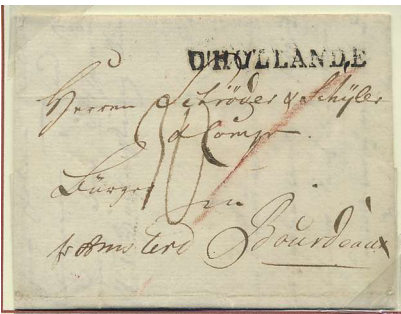 D'HOLLANDE
Herren Schröder & Schÿler
& Comp.
Bürger in
pr Amsterd Bourdeaux